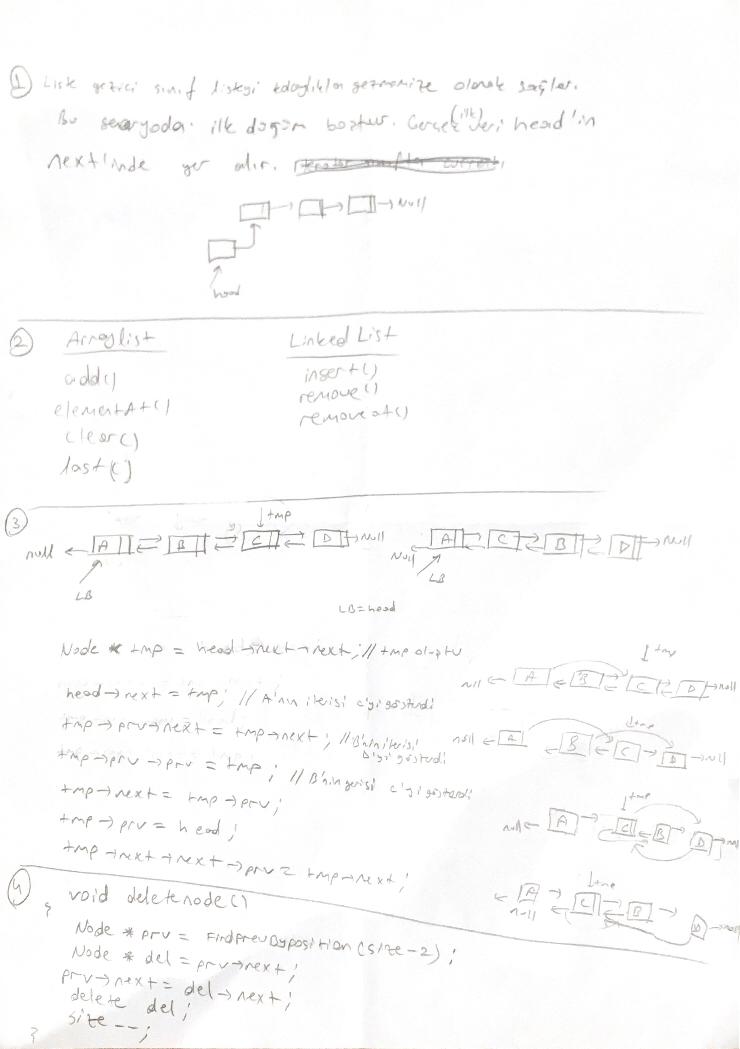 1 Liste gezici sınıf listeyi kolaylıkla gezmemize olanak sağlar.
Bu senaryoda ilk düğüm boştur. Gerçek (ilk) veri head'in
next'inde yer alır.
→ Null
head
2 Arraylist Linked List
add() insert()
elementAt() remove()
clear() removeat()
last()
3 ↓tmp
null ← A B C D → Null Null A C B D → Null
LB LB
LB=head
Node * tmp = head→next→next; // tmp oluştu
head→next = tmp; // A'nın ilerisi C'yi gösterdi
tmp→prv→next = tmp→next; // B'nin ilerisi D'yi gösterdi
tmp→prv→prv = tmp; // B'nin gerisi C'yi gösterdi
tmp→next = tmp→prv;
tmp→prv = head;
tmp→next→next→prv = tmp→next;
↓tmp
null ← A B C D → null
↓tmp
null ← A B C D → null
↓tmp
null ← A C B D null
↓tmp
A C B D → null
null
4 void deletenode()
{
Node * prv = FindPrevByposition(size-2);
Node * del = prv→next;
prv→next = del→next;
delete del;
size--;
}